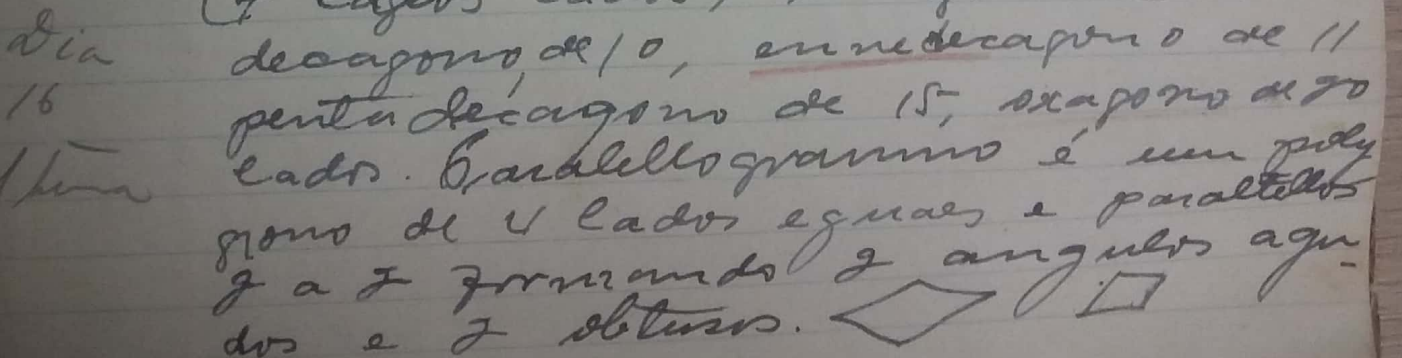 Dia decagono, de 10, ennedecagono de 11
16 pentadécagono de 15, oxagono de 20
lados. Paralellogrammo é um poly
gono de 4 lados eguaes e paralellos
2 a 2 formando 2 angulos agu-
dos e 2 obtusos.